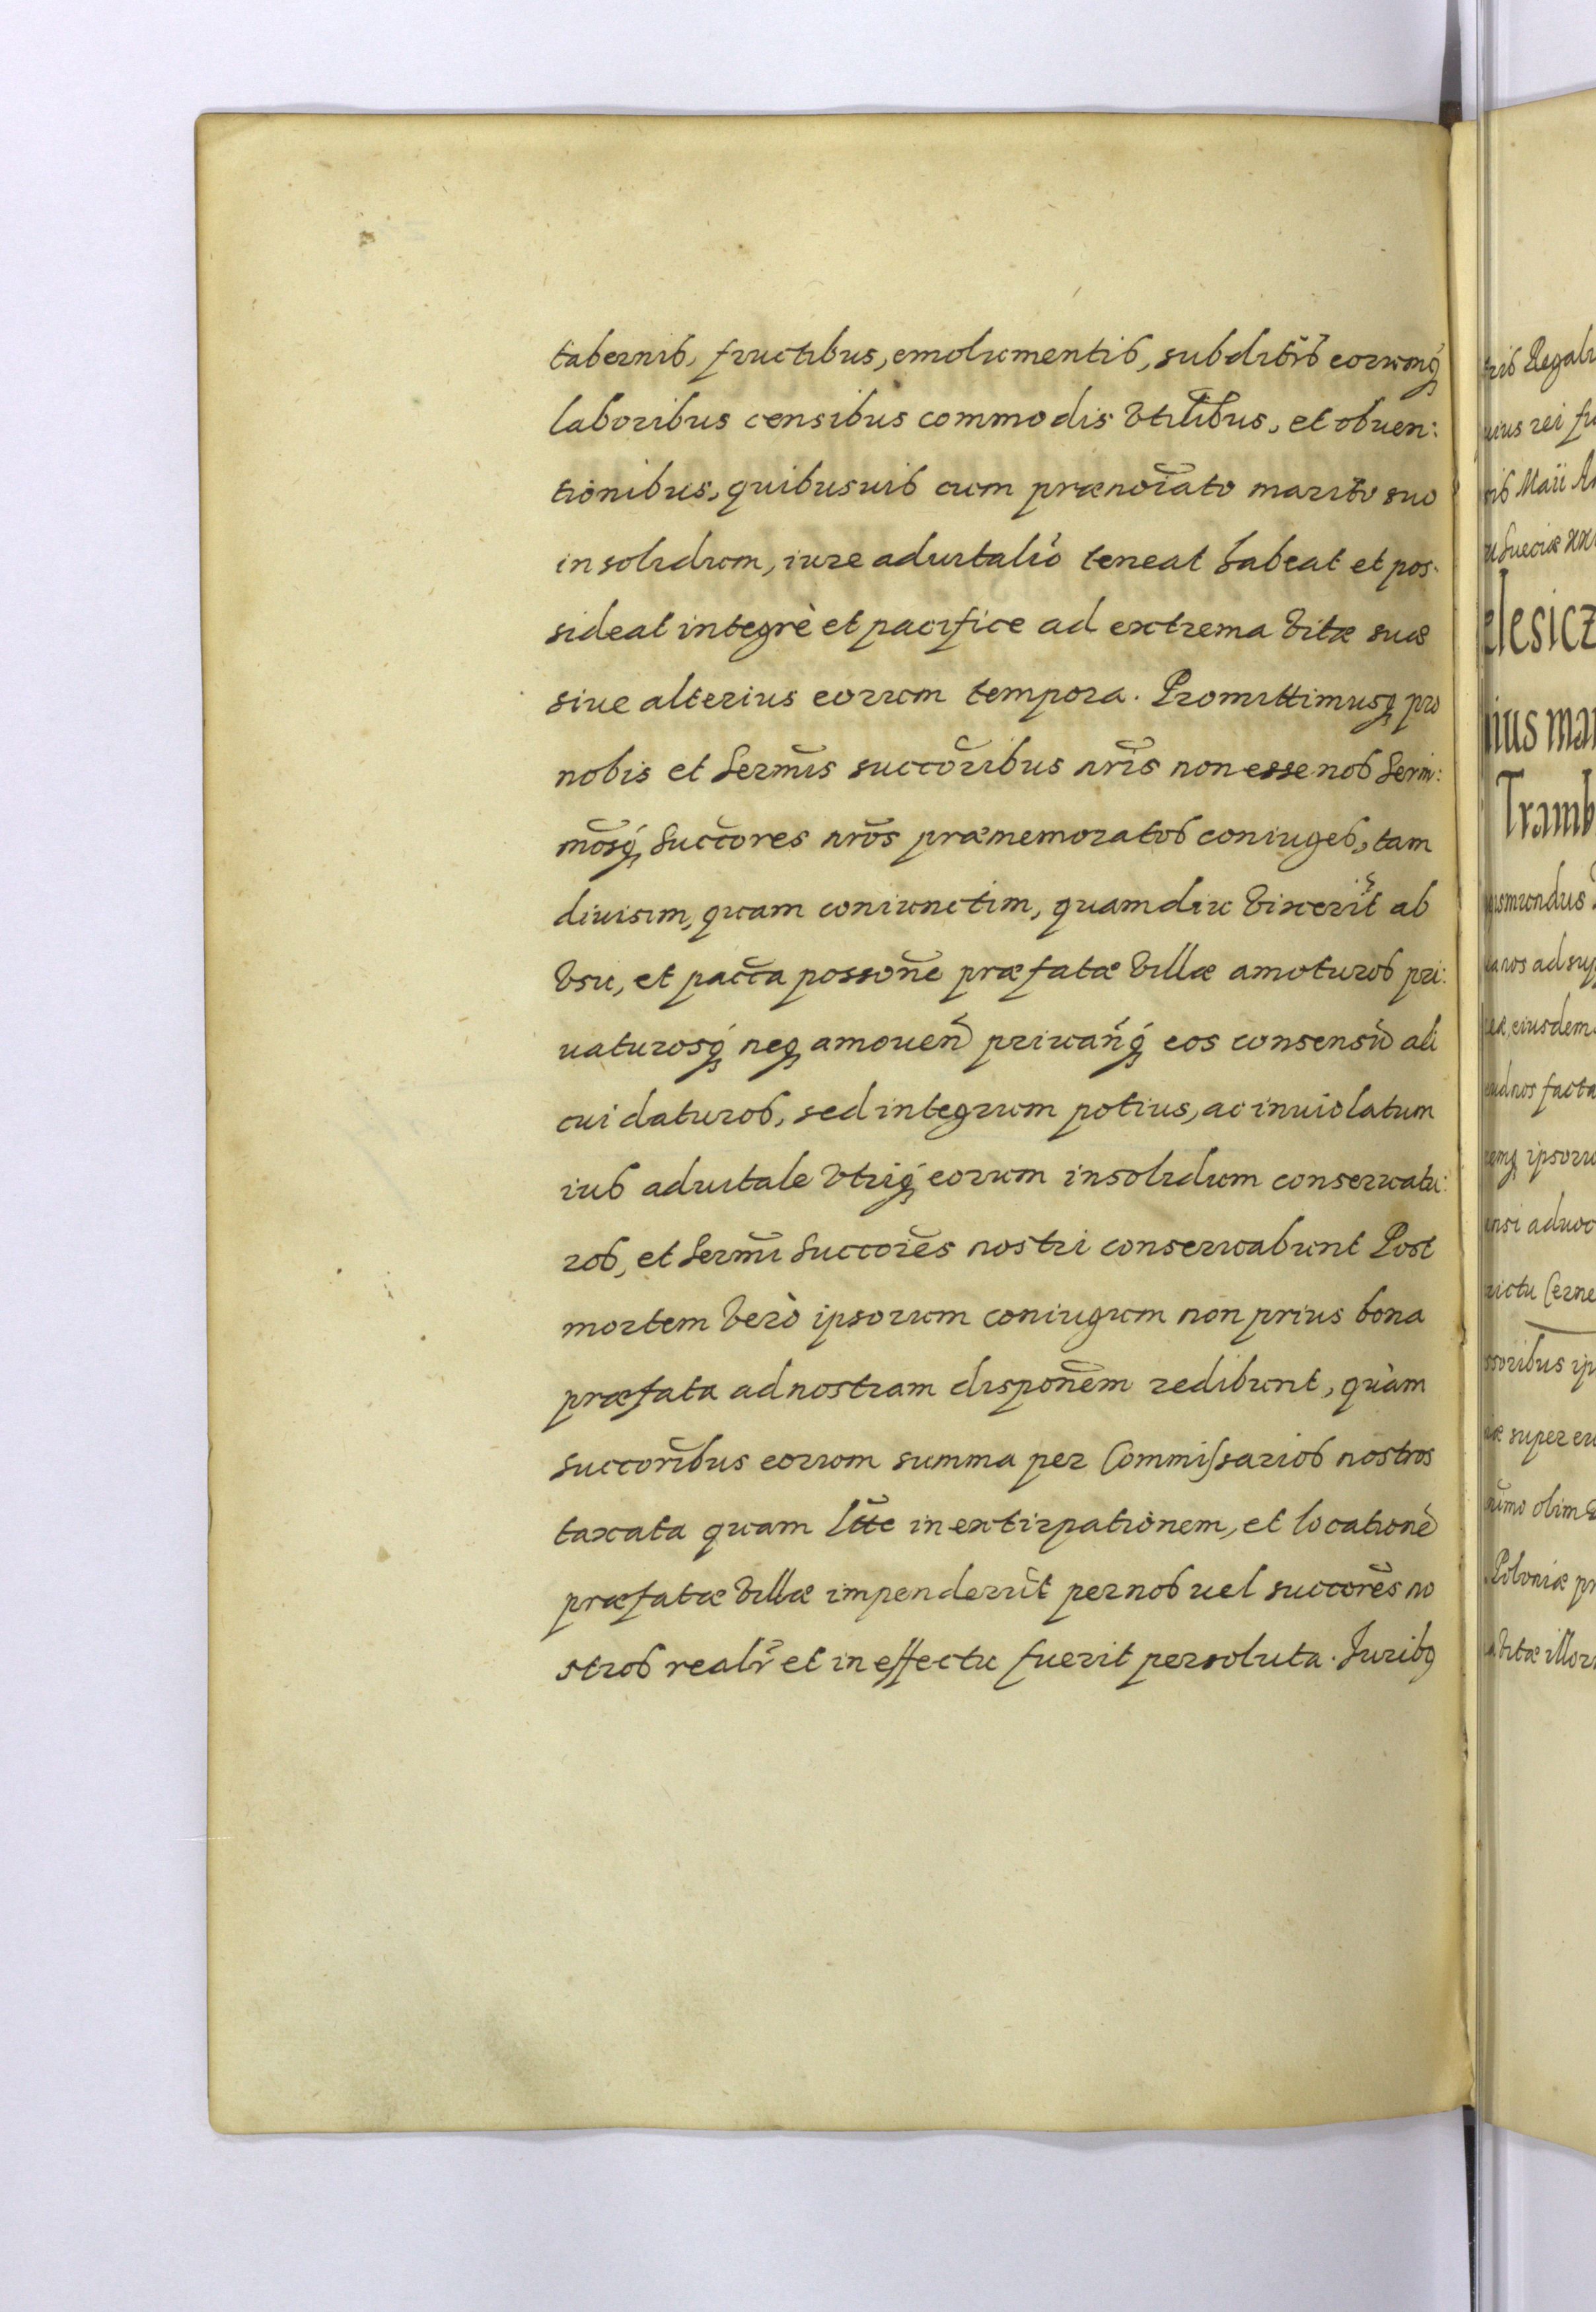 tabernis, fructibus, emolumentis, subditis eorumq́
laboribus censibus commodis vtilibus, et obuen:
tionibus, quibusuis cum prænoĩato marito suo
in solidum, iure aduitalio teneat habeat et pos-
sideat integrè et pacifice ad extrema vitæ suæ
siue alterius eorum tempora. Promittimusq pro
nobis et Serm̃is succõribus nr̃is non esse nos Seri:
mõsq́ Succõres nr̃os præmemoratos coniuges, tam
diuisim, quam coniunctim, quamdiu vixerit ab
vsu, et pac̃ca possõne præfatæ villæ amoturos pri:
uaturosq́ neq amouen̄ priuan̄q́ eos consensũ ali
cui daturos, sed integrum potius, ac inuiolatum
ius aduitale vtriq́ eorum insolidum conseruatu:
ros, et Serm̃i Succõres nostri conseruabunt Post
mortem verò ipsorum coniugum non prius bona
præfata ad nostram dispon̄em redibunt, quàm
succõribus eorum summa per Commissarios nostros
taxata quam Itt̃e in extirpationem, et locationẽ
præfatæ villæ impenderũt per nos uel succõres no
stros realr̃ et in effectu fuerit persoluta. Juribq
tris Regali
uius rei fi
ris Maii
Sueciæ xx
elesicz
ius ma
Tramb
gismundus
nos ad sup
eiusdem
ad nos facta
emq ipsoru
ensi aduoc
rictu Cerne
soribus ip
super eu
nimo olim
Poloniæ pr
vitæ illor